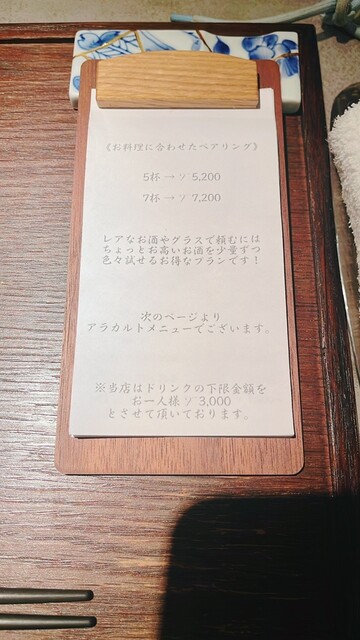 《お料理に合わせたペアリング》
5杯 → ¥ 5,200
7杯 → ¥ 7,200
レアなお酒やグラスで頼むには
ちょっとお高いお酒を少量ずつ
色々試せるお得なプランです！
次のページより
アラカルトメニューでございます。
※当店はドリンクの下限金額を
お一人様 ¥ 3,000
とさせて頂いております。